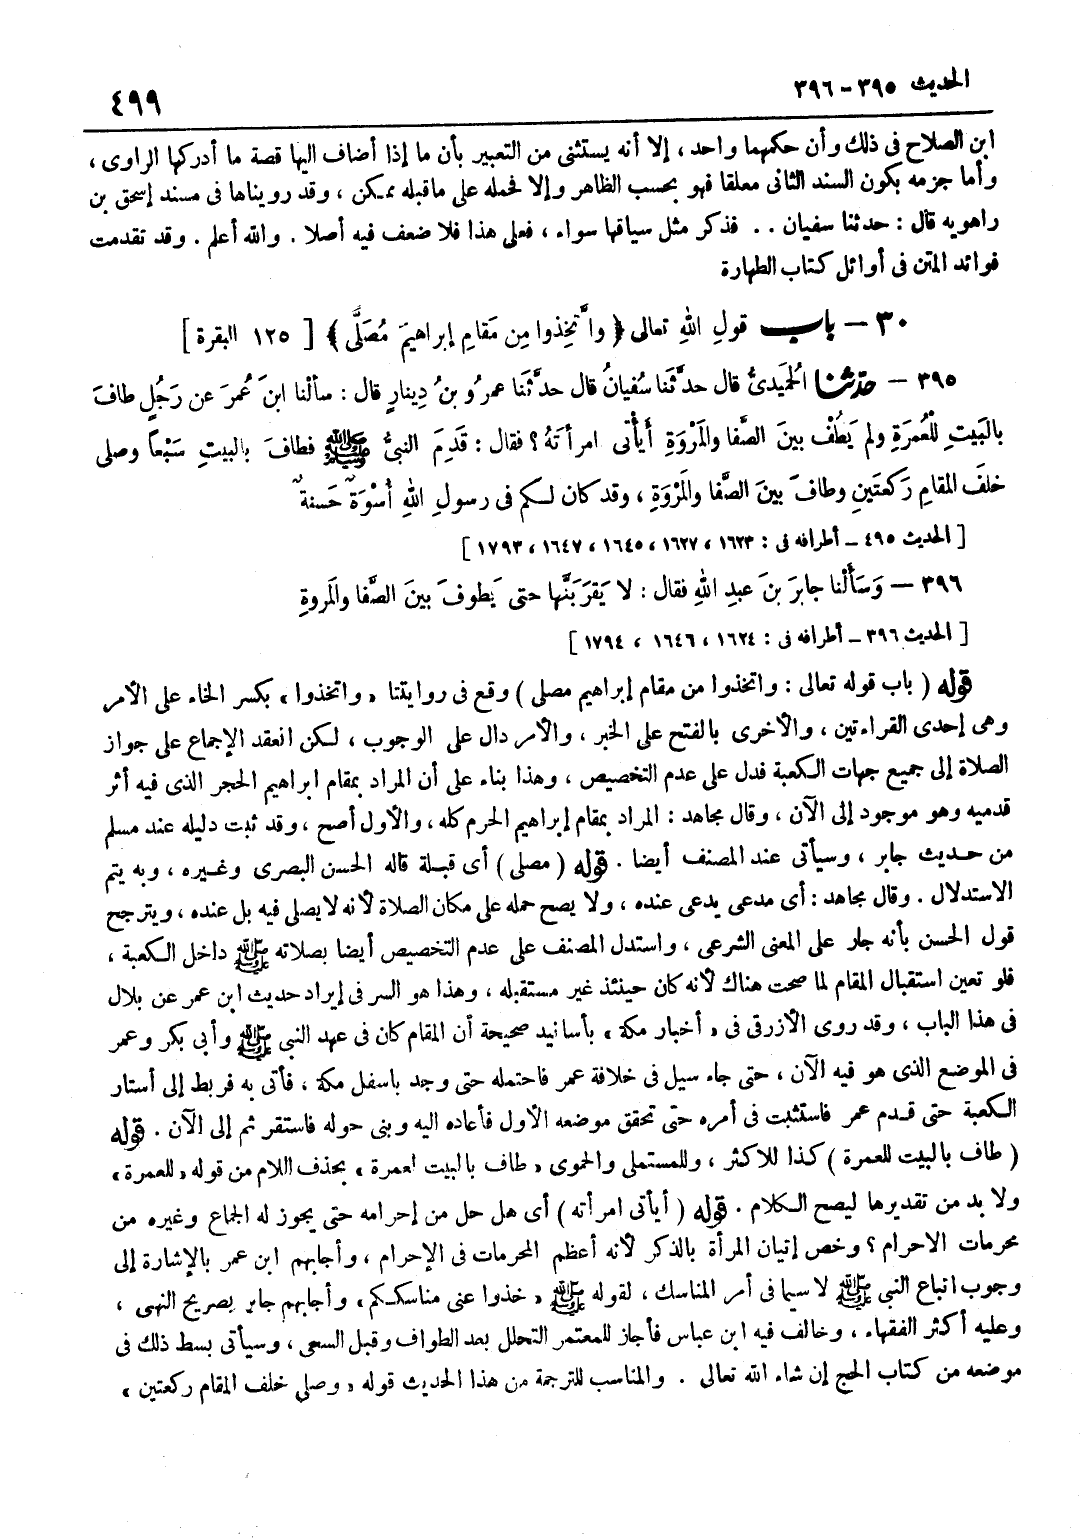 الحديث ٣٩٥ - ٣٩٦
٤٩٩
ابن الصلاح فى ذلك وأن حكمهما واحد ، إلا أنه يستثنى من التعبير بأن ما إذا أضاف اليها قصة ما أدركها الراوى ،
وأما جزمه بكون السند الثانى معلقا فهو بحسب الظاهر وإلا فحمله على ماقبله ممكن ، وقد رويناها فى مسند إسحق بن
راهويه قال : حدثنا سفيان . . فذكر مثل سياقها سواء ، فعلى هذا فلا ضعف فيه أصلا . والله أعلم . وقد تقدمت
فوائد المتن فى أوائل كتاب الطهارة
٣٠ - باب قولِ اللهِ تعالى ﴿ واتَّخِذوا مِن مَقامِ إبراهيمَ مُصَلًّى ﴾ [ ١٢٥ البقرة ]
٣٩٥ - حدّثنا الُحمَيدىُّ قال حدَّثَنا سُفيانُ قال حدَّثَنا عمرُو بنُ دِينارٍ قال : سألْنا ابنَ عُمرَ عن رَجُلٍ طافَ
بالبَيتِ للْعُمرَةِ ولم يَطُفْ بينَ الصَّفا والمَرْوَةِ أيَأْتى امرأتَهُ ؟ فقال : قَدِمَ النبىُّ ﷺ فطافَ بالبيتِ سَبْعاً وصلى
خلفَ المقامِ رَكعتَينِ وطافَ بينَ الصَّفا والمَرْوَةِ ، وقد كان لـكم فى رسولِ اللهِ أُسْوَةٌ حَسنةٌ
[ الحديث ٤٩٥ - أطرافه فى : ١٦٢٣ ، ١٦٢٧ ، ١٦٤٥ ، ١٦٤٧ ، ١٧٩٣ ]
٣٩٦ - وَسَألْنا جابرَ بنَ عبدِ اللهِ فقال : لا يَقرَبَنَّها حتى يَطوفَ بينَ الصَّفا والمَروةِ
[ الحديث ٣٩٦ - أطرافه فى : ١٦٢٤ ، ١٦٤٦ ، ١٧٩٤ ]
قوله ( باب قوله تعالى : واتخذوا من مقام إبراهيم مصلى ) وقع فى روايتنا « واتخذوا » بكسر الخاء على الأمر
وهى إحدى القراءتين ، والأخرى بالفتح على الخبر ، والأمر دال على الوجوب ، لـكن انعقد الإجماع على جواز
الصلاة إلى جميع جهات الـكعبة فدل على عدم التخصيص ، وهذا بناء على أن المراد بمقام ابراهيم الحجر الذى فيه أثر
قدميه وهو موجود إلى الآن ، وقال مجاهد : المراد بمقام إبراهيم الحرم كله ، والأول أصح ، وقد ثبت دليله عند مسلم
من حديث جابر ، وسيأتى عند المصنف أيضا . قوله ( مصلى ) أى قبلة قاله الحسن البصرى وغيره ، وبه يتم
الاستدلال . وقال مجاهد : أى مدعى يدعى عنده ، ولا يصح حمله على مكان الصلاة لأنه لا يصلى فيه بل عنده ، ويترجح
قول الحسن بأنه جار على المعنى الشرعى ، واستدل المصنف على عدم التخصيص أيضا بصلاته ﷺ داخل الـكعبة ،
فلو تعين استقبال المقام لما صحت هناك لأنه كان حينئذ غير مستقبله ، وهذا هو السر فى إيراد حديث ابن عمر عن بلال
فى هذا الباب ، وقد روى الأزرقى فى « أخبار مكة » بأسانيد صحيحة أن المقام كان فى عهد النبى ﷺ وأبى بكر وعمر
فى الموضع الذى هو فيه الآن ، حتى جاء سيل فى خلافة عمر فاحتمله حتى وجد بأسفل مكة ، فأتى به فربط إلى أستار
الـكعبة حتى قدم عمر فاستثبت فى أمره حتى تحقق موضعه الأول فأعاده اليه وبنى حوله فاستقر ثم إلى الآن . قوله
( طاف بالبيت للعمرة ) كذا للاكثر ، وللمستملى والحموى « طاف بالبيت لعمرة » بحذف اللام من قوله « للعمرة »
ولا بد من تقديرها ليصح الـكلام . قوله ( أيأتى امرأته ) أى هل حل من إحرامه حتى يجوز له الجماع وغيره من
محرمات الاحرام ؟ وخص إتيان المرأة بالذكر لأنه أعظم المحرمات فى الإحرام ، وأجابهم ابن عمر بالإشارة إلى
وجوب اتباع النبى ﷺ لا سيما فى أمر المناسك ، لقوله ﷺ « خذوا عنى مناسككم » وأجابهم جابر بصريح النهى ،
وعليه أكثر الفقهاء ، وخالف فيه ابن عباس فأجاز للمعتمر التحلل بعد الطواف وقبل السعى ، وسيأتى بسط ذلك فى
موضعه من كتاب الحج إن شاء الله تعالى . والمناسب للترجمة من هذا الحديث قوله « وصلى خلف المقام ركعتين »